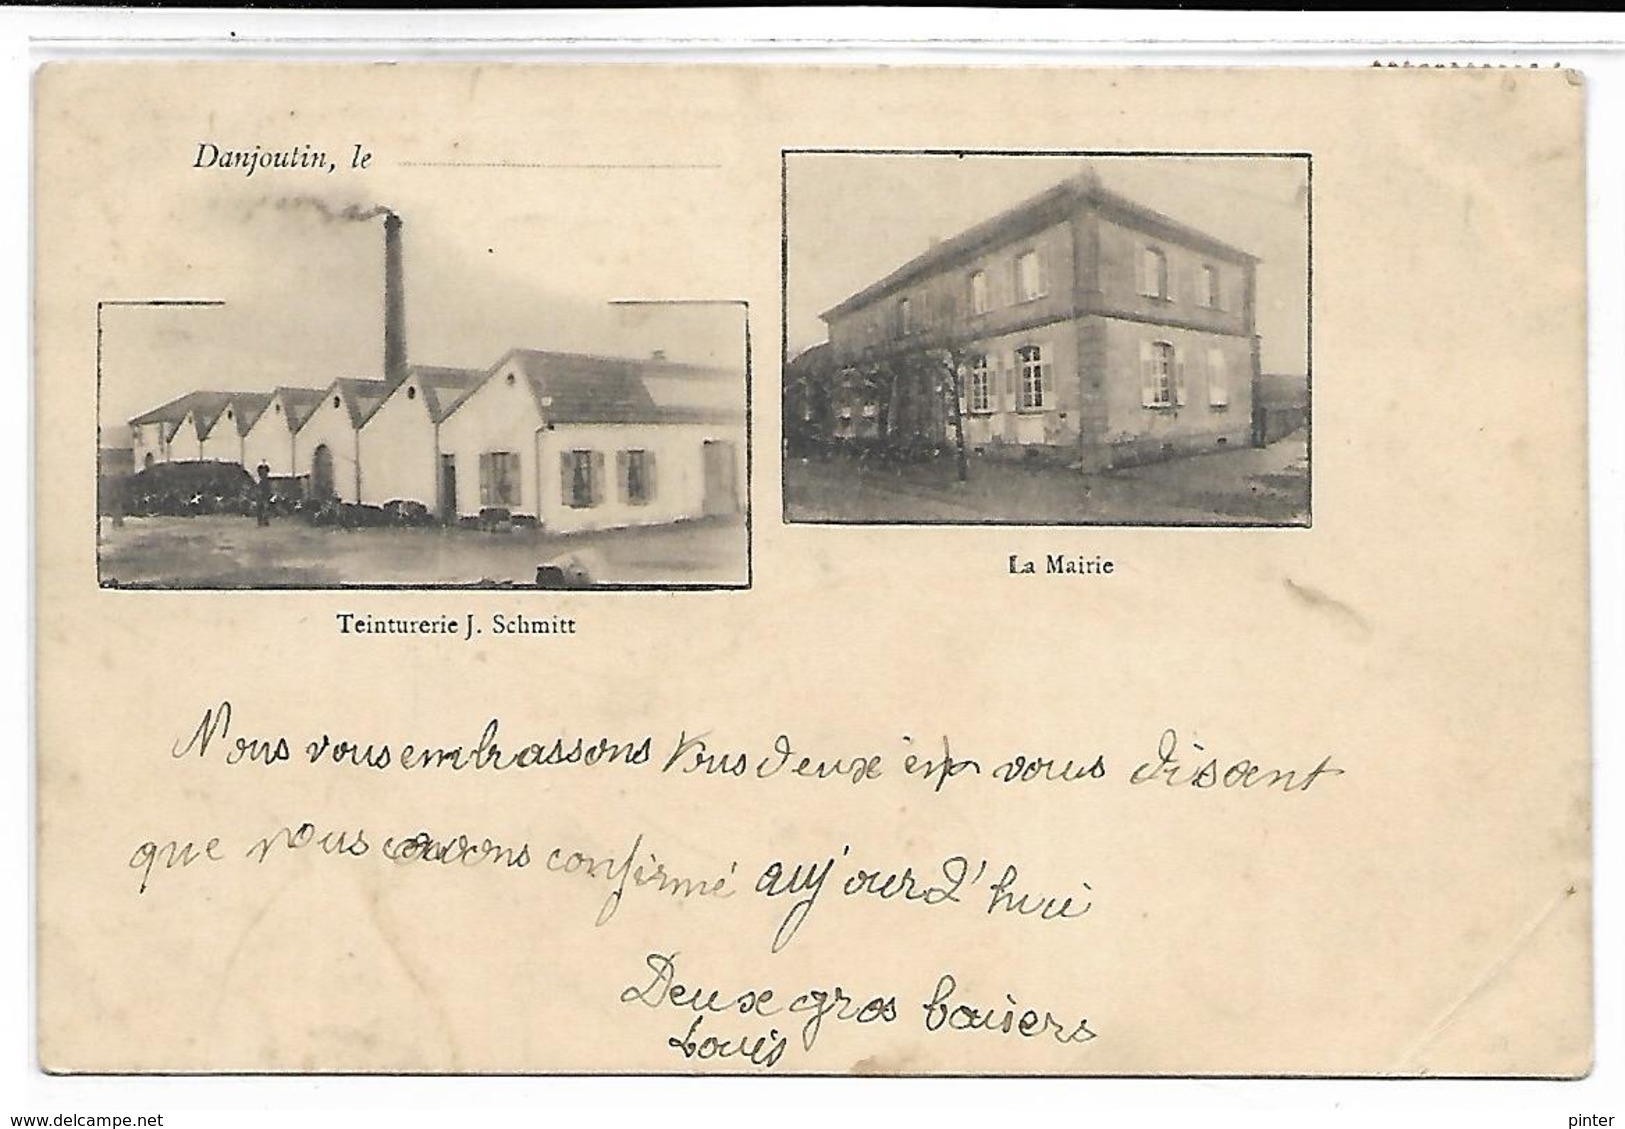 Danjoutin, le
La Mairie
Teinturerie J. Schmitt
Nous vous embrassons tous deux en vous disant
que nous avons confirmé aujourd'hui
Deux gros baisers
Louis
delcampe.net
pinter